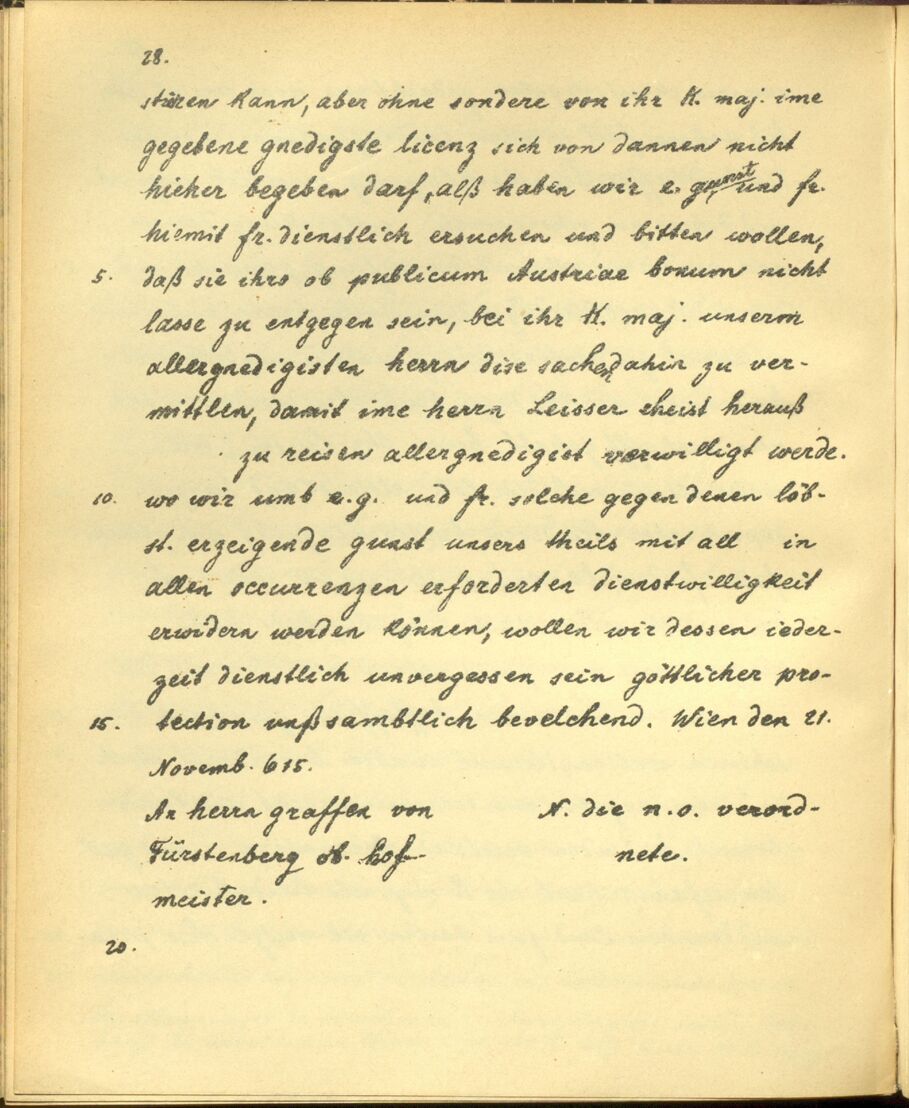 28.
stüren kann, aber ohne sondere von ihr K. maj. ime
gegebene gnedigste licenz sich von dannen nicht
hieher begeben darf, alß haben wir e. gunst und fr.
hiemit fr. dienstlich ersuchen und bitten wollen,
5. daß sie ihro ob publicum Austriae bonum nicht
lasse zu entgegen sein, bei ihr K. maj. unserm
allergnedigisten herrn dise sachen dahin zu ver-
mittlen, damit ime herrn Leisser eheist herauß
zu reisen allergnedigist verwilligt werde.
10. wo wir umb e. g. und fr. solche gegen denen löb-
st. erzeigende gunst unsers theils mit all in
allen occurrenzen erforderten dienstwilligkeit
erwidern werden können, wollen wir dessen ieder-
zeit dienstlich unvergessen sein göttlicher pro-
15. tection unß sambtlich bevelchend. Wien den 21.
Novemb. 615.
An herrn graffen von N. die n. o. verord-
Fürstenberg ob. hof- nete.
meister.
20.